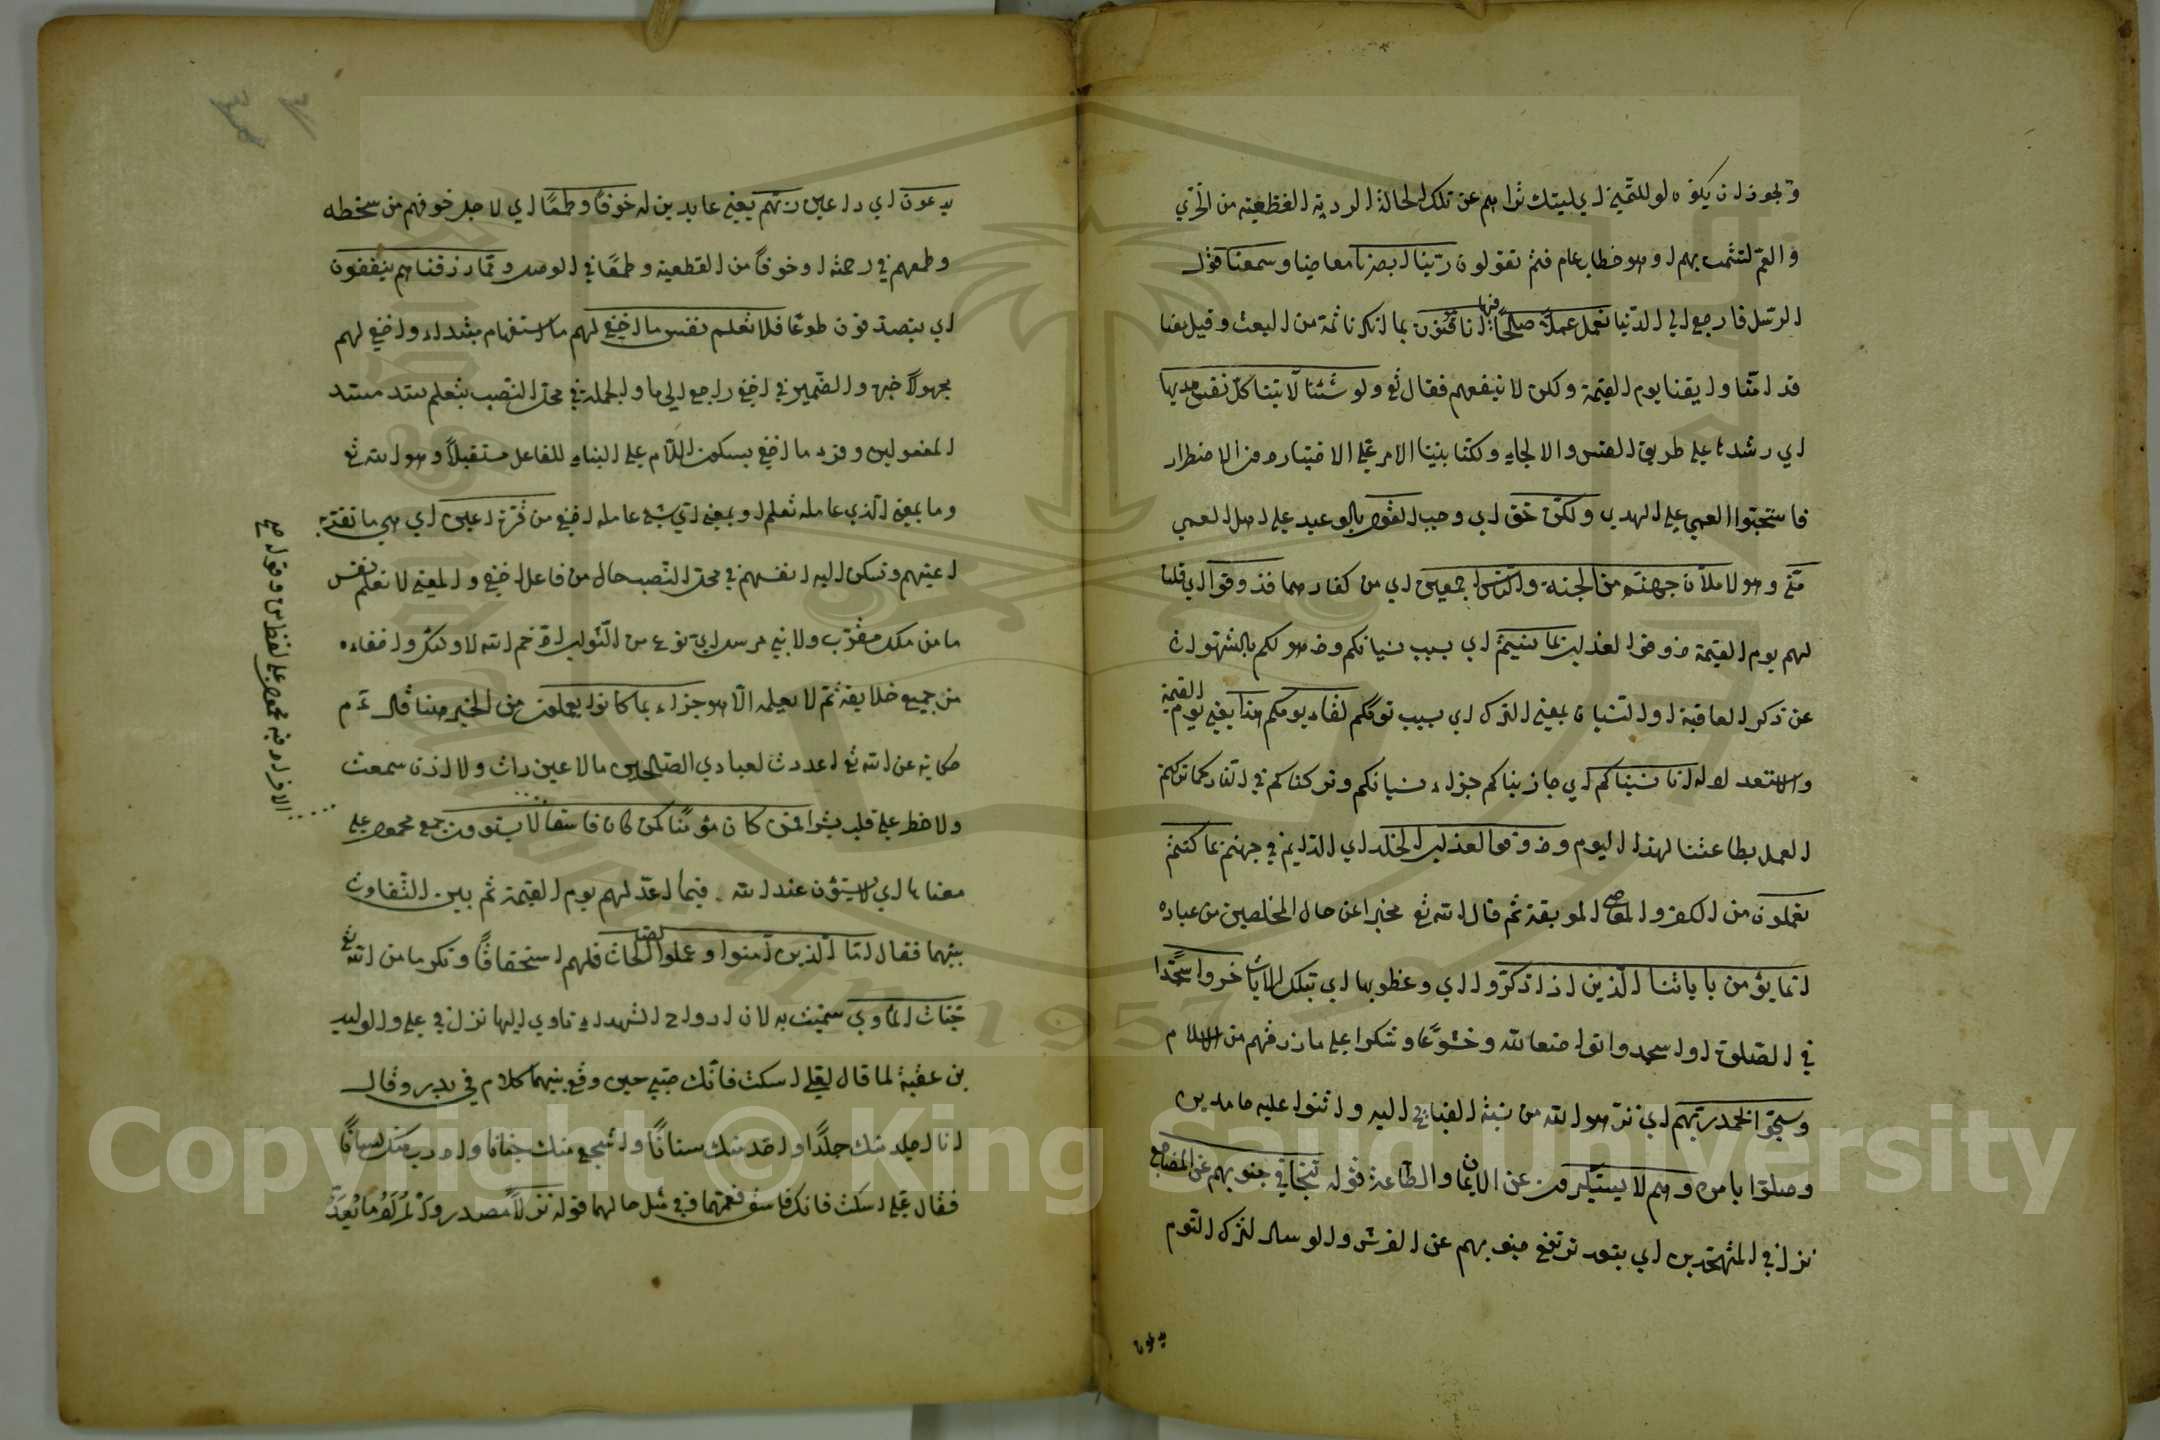 ويجوز ان يكون لو للتمني اي ليتك تراهم عن تلك الحالة الردية الفظيعة من الخزي
والغم لتشمت بهم او هو خطاب عام فثم تقولون ربنا ابصرنا معاصينا وسمعنا قول
الرسل فارجع الى الدنيا نعمل عملا صالحا فيها انا موقنون بما انكرنا ثمة من البعث وقيل
قد امنا وايقنا يوم القيمة ولكن لا ينفعهم فقال تع ولو شئنا لاتينا كل نفس هديها
اي رشدها على طريق القسر والالجاء ولكنا بنينا الامر على الاختيار دون الاضطرار
فاستحبوا العمى على الهدى ولكن حق اي وجب القول بالوعيد على اهل العمى
مني وهو لاملأن جهنم من الجنة والناس اجمعين اي من كفارهما فذوقوا اي قلنا
لهم يوم القيمة ذوقوا العذاب بما نسيتم اي بسبب نسيانكم وذهولكم بالشهوات
عن ذكر العاقبة او النسيان بمعنى الترك اي بسبب ترككم لقاء يومكم هذا يعني يوم القيمة
والاستعداد له انا نسيناكم اي جازيناكم جزاء نسيانكم وتركناكم في النار كما تركتم
العمل بطاعتنا لهذا اليوم وذوقوا العذاب الخلد اي الدايم في جهنم بما كنتم
تعملون من الكفر والمعاصي الموبقة ثم قال الله تع مخبرا عن حال المخلصين من عباده
انما يؤمن باياتنا الذين اذا ذكروا اي وعظوا بها اي بتلك الايات خروا سجدا
في الصلوة او اسجدوا تواضعا لله وخشوعا وشكرا على ما رزقهم من الاسلام
وسبحوا بحمد ربهم اي نزهوا الله من نسبة القبائح اليه واثنوا عليه حامدين
وصلوا بامره وهم لا يستكبرون عن الايمان والطاعة قوله تتجافى جنوبهم عن المضاجع
نزل في المتهجدين اي يتعد ترتفع جنوبهم عن الفرش والوسائد لترك النوم
يدعون
يدعون اي داعين ربهم يعني عابدين له خوفا وطمعا اي لاجل خوفهم من سخطه
وطمعهم في رحمته او خوفا من القطعية وطمعا في الوصل ومما رزقناهم ينفقون
اي يتصدقون طوعا فلا تعلم نفس ما اخفي لهم ما استفهام مبتداء واخفي لهم
مجهولا خبره والضمير في اخفي راجع الى ما والجملة في محل النصب بتعلم سد مسد
المفعولين وقرء ما اخفي بسكون اللام على البناء للفاعل مستقبلا وهو الله تع
وما بمعنى الذي عامله تعلم او بمعنى اي شئ عامله اخفي من قرة اعين اي هي ما تقر به
اعينهم وتسكن اليه انفسهم في محل النصب حال من فاعل اخفي والمعنى لا تعلم نفس
ما من ملك مقرب ولا نبي مرسل اي نوع من الثواب ادخرهم الله لاولئك واخفاه
من جميع خلايقه ثم لا يعلمه الا هو جزاء بما كانوا يعملون من الخير هنا قال عم
حكاية عن الله تع اعددت لعبادي الصالحين ما لا عين رات ولا اذن سمعت
ولا خطر على قلب بشر افمن كان مؤمنا كمن كان فاسقا لا يستوون جمع محمول على
معناها اي لا يستوون عند الله فيما اعد لهم يوم القيمة ثم بين التفاوت
بينهما فقال اما الذين آمنوا وعملوا الصالحات فلهم استحقاقا وتكرما من الله تع
جنات المأوى سميت به لان ارواح الشهداء تاوي اليها نزل في علي والوليد
بن عقبة لما قال لعلي اسكت فانك صبي حين وقع بينهما كلام في بدر وقال
انا اجلد منك جلدا واحد منك سنانا واشجع منك جنانا واذرب منك لسانا
فقال علي اسكت فانك فاسق فعمهما وفي مثل حالهما قوله نزلا مصدر
الافراد فيه محمول على لفظ من وقوله